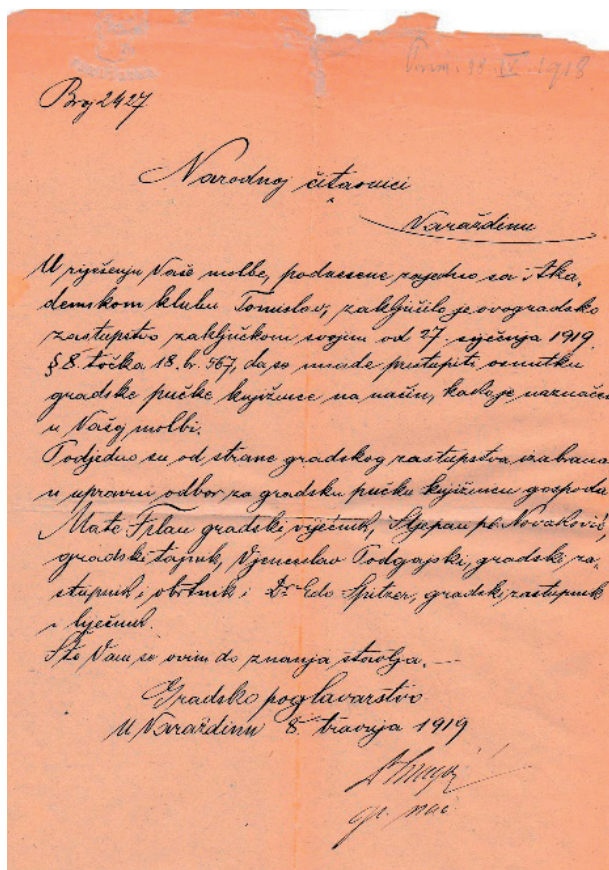 Prim. IV. 1918
Broj 2427
Narodnoj čitaonici
Varaždinu
U riješenju Vaše molbe, podnesene zajedno sa "Aka-
demskom klubu Tomislav, zaključilo je ovogradsko
zastupstvo zaključkom svojim od 27. siječnja 1919
§ 8. točka 18. br. 567, da se imade pristupiti osnutku
gradske pučke knjižnice na način, kako je naznačen
u Vašoj molbi.
Podjedno su od strane gradskog zastupstva izabrana
u upravni odbor za gradsku pučku knjižnicu gospoda
Mate Filan gradski vijećnik, Stjepan pl. Novaković,
gradski tajnik, Vjenceslav Podgajski, gradski za-
stupnik i obrtnik i Dr Edo Spitzer, gradski zastupnik
i liječnik.
Što Vam se ovim do znanja stavlja. —
Gradsko poglavarstvo
U Varaždinu 8. travnja 1919
gr. nač.